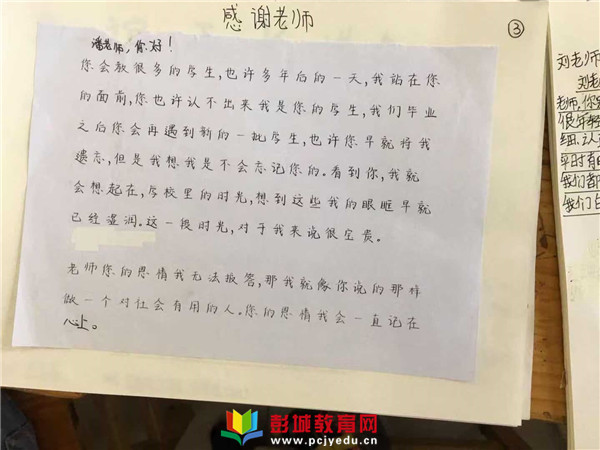 感谢老师
③
潘老师，你好！
您会教很多的学生，也许多年后的一天，我站在您
的面前，您也许认不出来我是您的学生，我们毕业
之后您会再遇到新的一批学生，也许您早就将我
遗忘，但是我想我是不会忘记您的。看到你，我就
会想起在，学校里的时光，想到这些我的眼眶早就
已经湿润。这一段时光，对于我来说很宝贵。
老师您的恩情我无法报答，那我就像你说的那样
做一个对社会有用的人。您的恩情我会一直记在
心上。
刘老师
刘老
老师，您
很年轻
细，认
平时有
我们都
我们白
彭城教育网
www.pcjyedu.cn